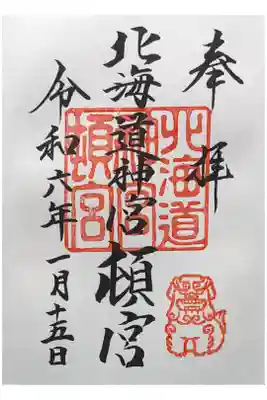 奉拝
北海道神宮頓宮
令和六年一月十五日
北海道神宮頓宮